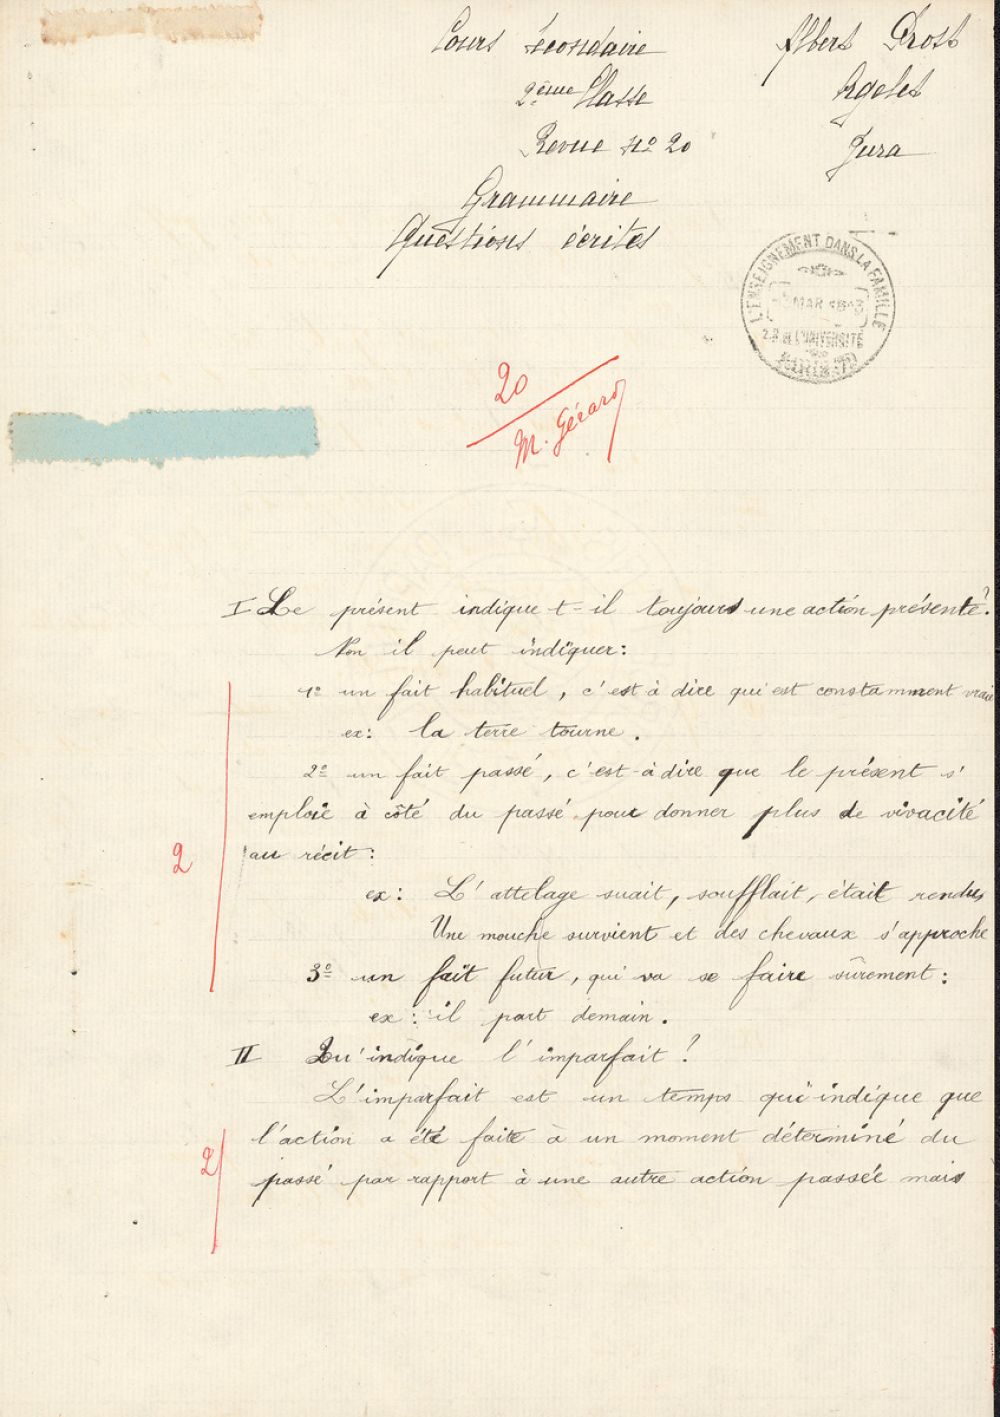 Cours Secondaire
Albert Prost
2ème Classe
Agelet
Revue No 20
Jura
Grammaire
Questions écrites
L'ENSEIGNEMENT DANS LA FAMILLE
MAR
R. DE L'UNIVERSITÉ
20
M. Gérard
I Le présent indique t-il toujours une action présente?
Non il peut indiquer:
1º un fait habituel, c'est à dire qui est constamment vrai
ex: la terre tourne.
2º un fait passé, c'est-à dire que le présent s'
emploie à côté du passé pour donner plus de vivacité
2
au récit:
ex: L'attelage suait, soufflait, était rendu,
Une mouche survient et des chevaux s'approche
3º un fait futur, qui va se faire sûrement:
ex: il part demain.
II Qu'indique l'imparfait?
L'imparfait est un temps qui indique que
l'action a été faite à un moment déterminé du
2
passé par rapport à une autre action passée mais